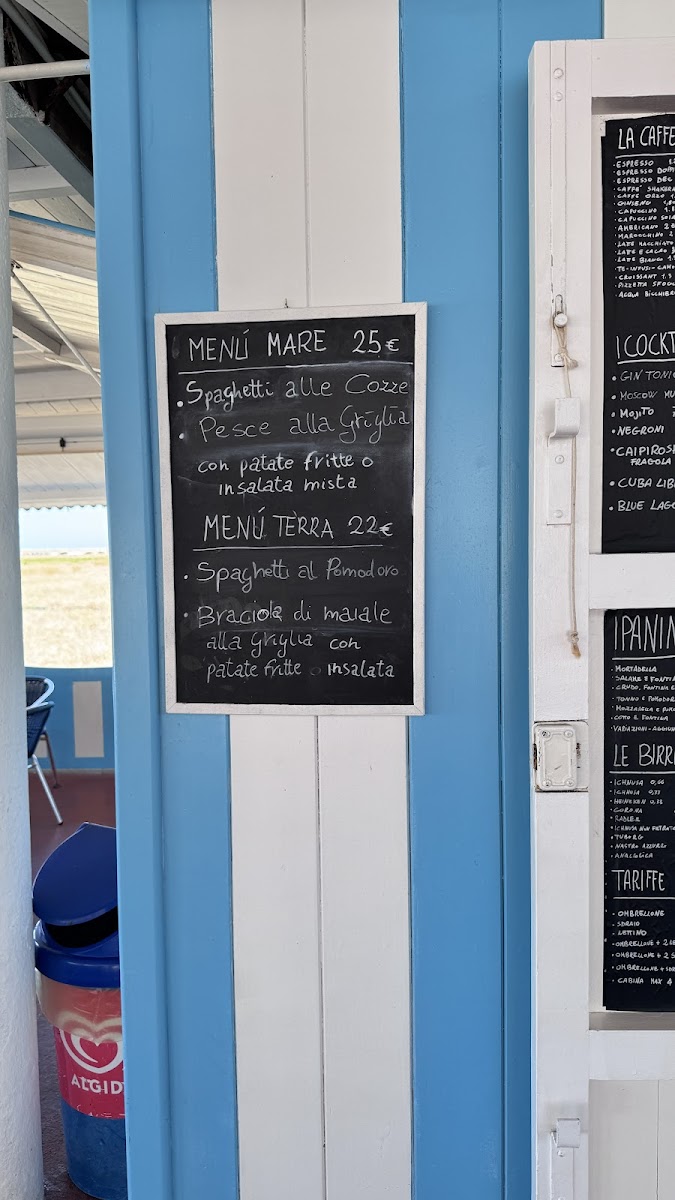 MENÚ MARE 25€
• Spaghetti alle Cozze
• Pesce alla Griglia
con patate fritte o
insalata mista
MENÚ TERRA 22€
• Spaghetti al Pomodoro
• Braciola di maiale
alla griglia con
patate fritte o insalata
LA CAFFE
• ESPRESSO
• ESPRESSO
• ESPRESSO DEC
• CAFFE'
• CAFFE ORZO
• GINSENG
• CAPUCCINO
• CAPUCCINO
• AMERICANO 2
• MAROCCHINO 2
• LATE MACCHIATO
• LATE E CACAO
• LATE BIANCO
• TE-INFUSI-CAMO
• CROISSANT 1.3
• PIZZETTA SFOG
• ACQUA BICCHIER
I COCKT
• GIN TONIC
• MOSCOW MU
• MOJITO 7
• NEGRONI
• CAIPIROS
FRAGOLA
• CUBA LIB
• BLUE LAGO
I PANIN
• MORTADELLA
• SALAME E FONTIN
• CRUDO, FONTINA E
• TONNO E POMODOR
MOZZARELLA E POMO
• COTTO E FONTINA
• VARIAZIONI-AGGIUN
LE BIRR
• ICHNUSA 0,66
• ICHNUSA 0,33
• HEINEKEN 0,33
• CORONA
• RADLER
• ICHNUSA NON FILTRATA
• TUBORG
• NASTRO AZZURRO
• ANALCOLICA
TARIFFE
• OMBRELLONE
• SDRAIO
- LETTINO
• OMBRELLONE + 2
• OMBRELLONE + 2
• OMBRELLONE +
• CABINA MAX 4
ALGID